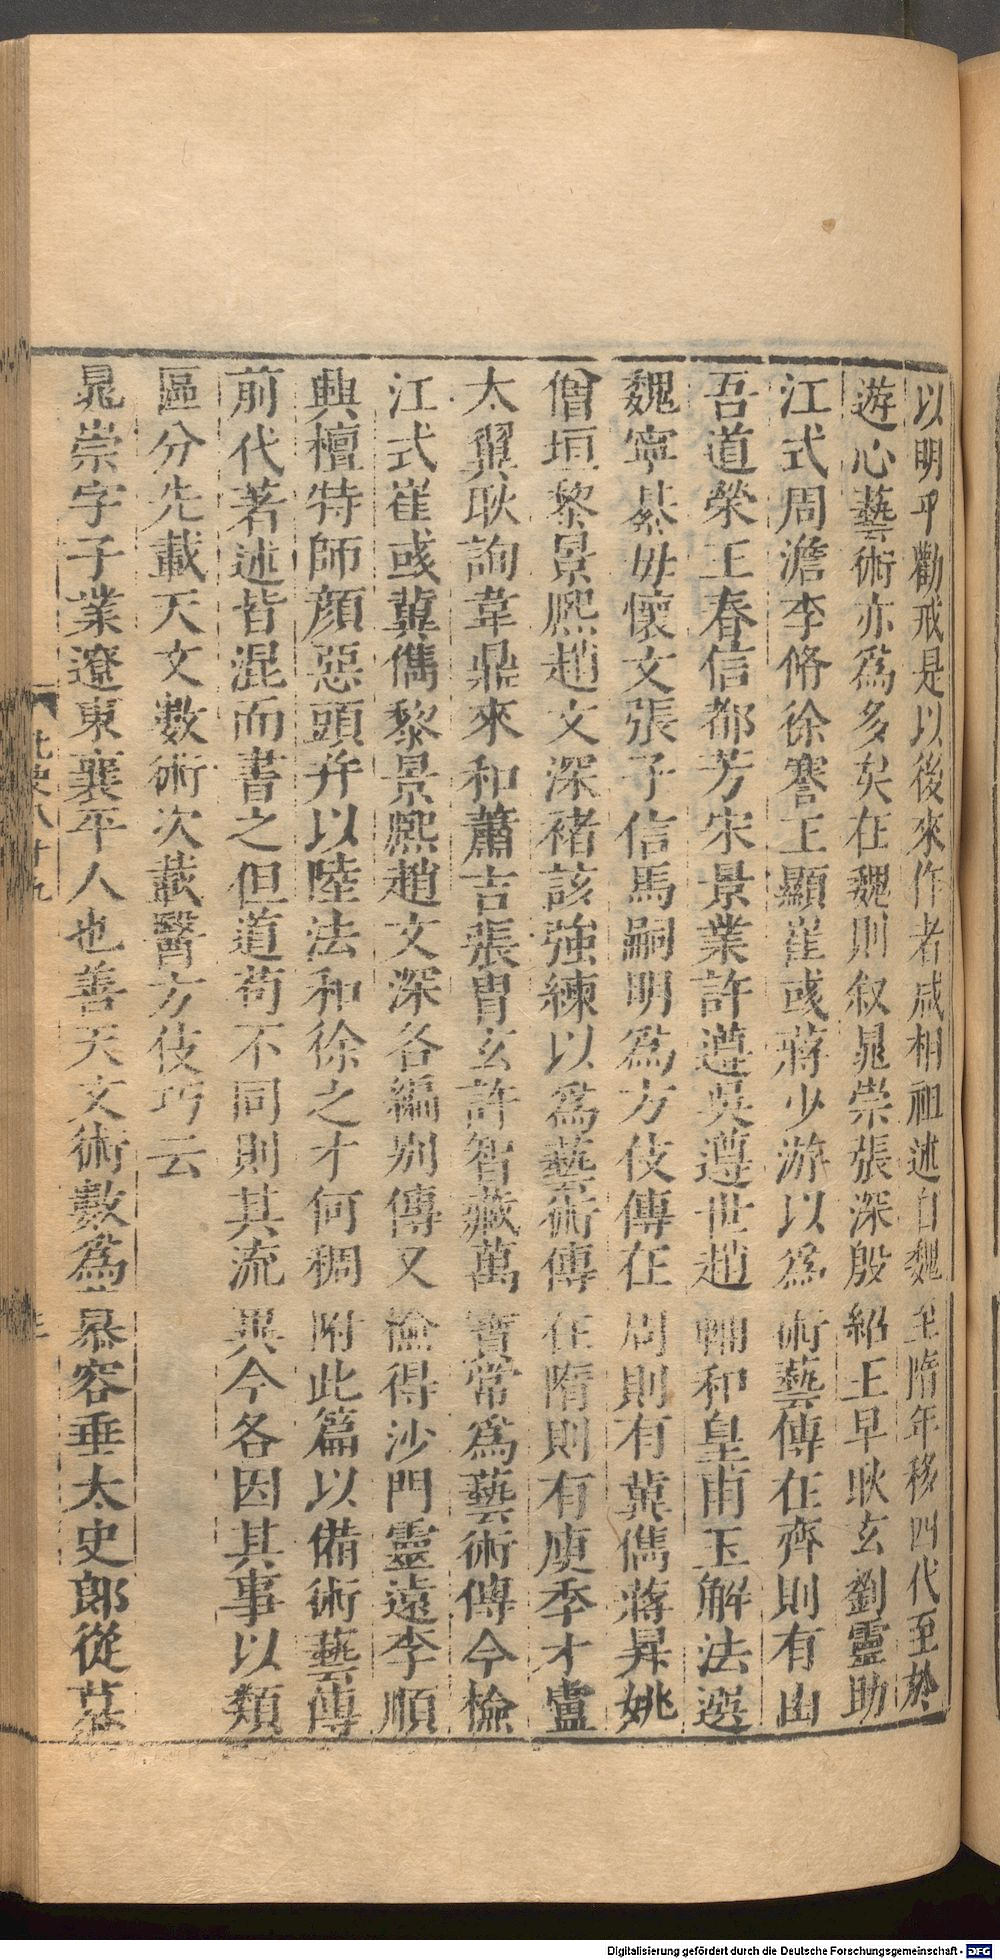 以明乎勸戒是以後來作者咸相祖述自魏至隋年移四代至於
遊心藝術亦爲多矣在魏則叙晁崇張深殷紹王早耿玄劉靈助
江式周澹李脩徐謇王顯崔彧蔣少游以爲術藝傳在齊則有由
吾道榮王春信都芳宋景業許遵吳遵世趙輔和皇甫玉解法選
魏寧綦毋懷文張子信馬嗣明爲方伎傳在周則有冀儁蔣昇姚
僧垣黎景熈趙文深褚該強練以爲藝術傳在隋則有庾季才盧
太翼耿詢韋鼎來和蕭吉張冑玄許智藏萬寳常爲藝術傳今檢
江式崔彧冀儁黎景熈趙文深各編别傳又檢得沙門靈遠李順
興檀特師顔惡頭并以陸法和徐之才何稠附此篇以備術藝傳
前代著述皆混而書之但道苟不同則其流異今各因其事以類
區分先載天文數術次載醫方伎巧云
晁崇字子業遼東襄平人也善天文術數爲慕容垂太史郎從慕
北史八十九
二
Digitalisierung gefördert durch die Deutsche Forschungsgemeinschaft - DFG